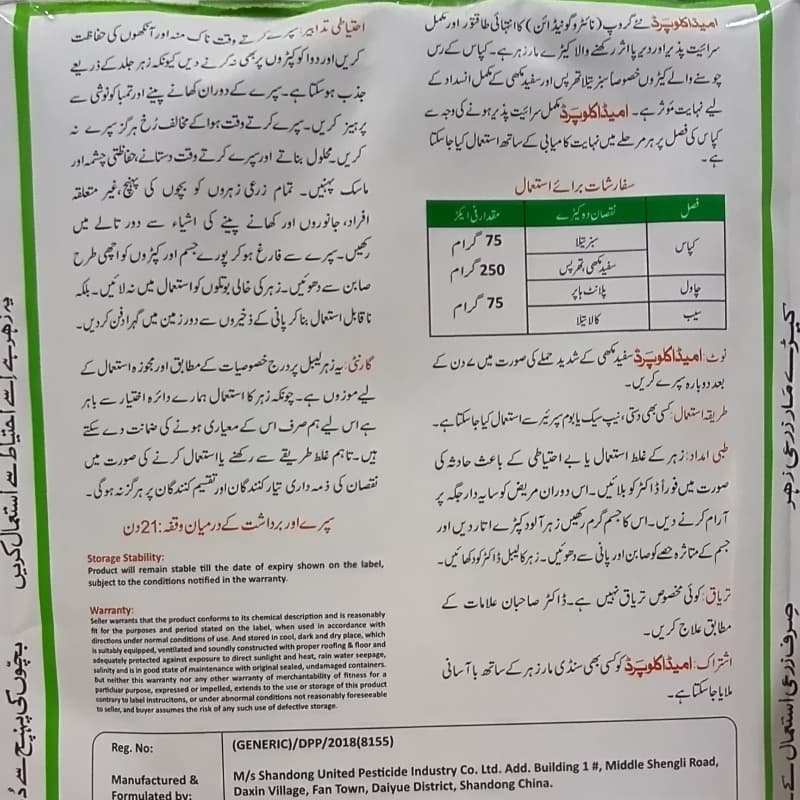 امیڈاکلوپرڈ نئے گروپ (نائٹروگونیڈائن) کا انتہائی طاقتور اور مکمل
سرائیت پذیر اور دیرپا اثر رکھنے والا کیڑے مار زہر ہے۔ کپاس کے رس
چوسنے والے کیڑوں خصوصاً سبز تیلا تھرپس اور سفید مکھی کے مکمل انسداد کے
لیے نہایت موثر ہے۔ امیڈاکلوپرڈ مکمل سرائیت پذیر ہونے کی وجہ سے
کپاس کی فصل پر ہر مرحلے میں نہایت کامیابی کے ساتھ استعمال کیا جاسکتا
ہے۔
سفارشات برائے استعمال
فصل نقصان دہ کیڑے مقدار فی ایکڑ
کپاس سبز تیلا 75 گرام
سفید مکھی، تھرپس 250 گرام
چاول پلانٹ ہاپر 75 گرام
سیب کالا تیلا
نوٹ: امیڈاکلوپرڈ سفید مکھی کے شدید حملے کی صورت میں ۷ دن کے
بعد دوبارہ سپرے کریں۔
طریقہ استعمال: کسی بھی دستی، نیپ سیک یا بوم سپرئیر سے استعمال کیا جاسکتا ہے۔
طبی امداد: زہر کے غلط استعمال یا بے احتیاطی کے باعث حادثہ کی
صورت میں فوراً ڈاکٹر کو بلائیں۔ اس دوران مریض کو سایہ دار جگہ پر
آرام کرنے دیں۔ اس کا جسم گرم رکھیں زہر آلود کپڑے اتار دیں اور
جسم کے متاثرہ حصے کو صابن اور پانی سے دھوئیں۔ زہر کا لیبل ڈاکٹر کو دکھائیں۔
تریاق: کوئی مخصوص تریاق نہیں ہے۔ ڈاکٹر صاحبان علامات کے
مطابق علاج کریں۔
اشتراک: امیڈاکلوپرڈ کو کسی بھی سنڈی مار زہر کے ساتھ با آسانی
ملایا جاسکتا ہے۔
احتیاطی تدابیر: سپرے کرتے وقت ناک منہ اور آنکھوں کی حفاظت
کریں اور دوا کو کپڑوں پر بھی نہ گرنے دیں کیونکہ زہر جلد کے ذریعے
جذب ہوسکتا ہے۔ سپرے کے دوران کھانے پینے اور تمباکو نوشی سے
پرہیز کریں۔ سپرے کرتے وقت ہوا کے مخالف رُخ ہرگز سپرے نہ
کریں۔ محلول بناتے اور سپرے کرتے وقت دستانے، حفاظتی چشمہ اور
ماسک پہنیں۔ تمام زرعی زہروں کو بچوں کی پہنچ، غیر متعلقہ
افراد، جانوروں اور کھانے پینے کی اشیاء سے دور تالے میں
رکھیں۔ سپرے سے فارغ ہوکر پورے جسم اور کپڑوں کو اچھی طرح
صابن سے دھوئیں۔ زہر کی خالی بوتلوں کو استعمال میں نہ لائیں۔ بلکہ
ناقابل استعمال بنا کر پانی کے ذخیروں سے دور زمین میں گہرا دفن کردیں۔
گارنٹی: یہ زہر لیبل پر درج خصوصیات کے مطابق اور مجوزہ استعمال کے
لیے موزوں ہے۔ چونکہ زہر کا استعمال ہمارے دائرہ اختیار سے باہر
ہے اس لیے ہم صرف اس کے معیاری ہونے کی ضمانت دے سکتے
ہیں۔ تاہم غلط طریقے سے رکھنے یا استعمال کرنے کی صورت میں
نقصان کی ذمہ داری تیار کنندگان اور تقسیم کنندگان پر ہرگز نہ ہوگی۔
سپرے اور برداشت کے درمیان وقفہ: 21 دن
Storage Stability:
Product will remain stable till the date of expiry shown on the label,
subject to the conditions notified in the warranty.
Warranty:
Seller warrants that the product conforms to its chemical description and is reasonably
fit for the purposes and period stated on the label, when used in accordance with
directions under normal conditions of use. And stored in cool, dark and dry place, which
is suitably equipped, ventilated and soundly constructed with proper roofing & floor and
adequately protected against exposure to direct sunlight and heat, rain water seepage,
salinity and is in good state of maintenance with original sealed, undamaged containers.
But neither this warranty nor any other warranty of merchantability of fitness for a
particuar purpose, expressed or impelled, extends to the use or storage of this product
contrary to label instrucitons, or under abnormal conditions not reasonably foreseeable
to seller, and buyer assumes the risk of any such use of defective storage.
Reg. No: (GENERIC)/DPP/2018(8155)
Manufactured & Formulated by: M/s Shandong United Pesticide Industry Co. Ltd. Add. Building 1 #, Middle Shengli Road,
Daxin Village, Fan Town, Daiyue District, Shandong China.
یہ زہر ہے اسے احتیاط سے استعمال کریں
بچوں کی پہنچ سے دُ
کیڑے مار زرعی زہر
صرف زرعی استعمال کے